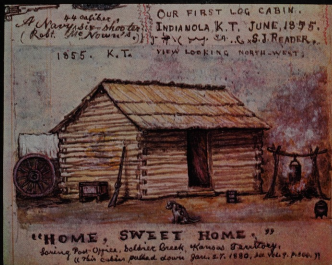 44 calibre
A Navy six-shooter
(Robt. McNown's.)
OUR FIRST LOG CABIN.
INDIANOLA, K.T. JUNE, 1855.
S.J. READER.
1855. K.T.
VIEW LOOKING NORTH-WEST.
"HOME, SWEET HOME."
Loring Post-Office, Soldier Creek, Kansas Territory.
(This cabin pulled down Jan. 27, 1880, see vol. 9. p.